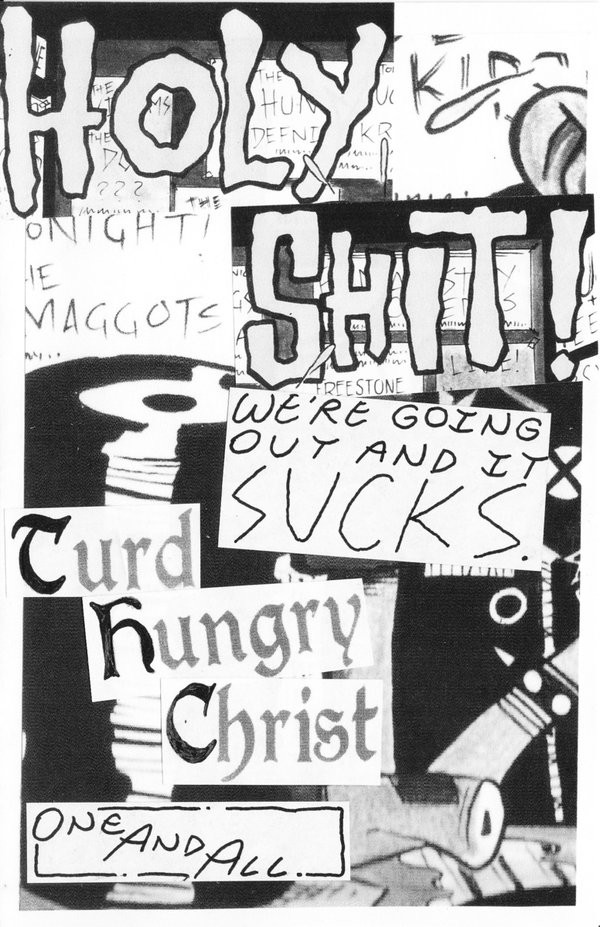 HOLY
THE
THE
HUN
DEFNI
KR
???
THE
ONIGHT!
MAGGOTS
SHIT!
LIVE!
FREESTONE
WE'RE GOING
OUT AND IT
SUCKS.
Turd
Hungry
Christ
ONE AND ALL.